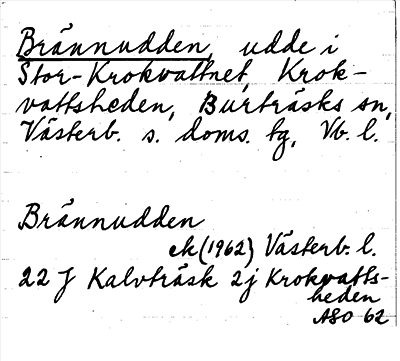 Brännudden, udde i
Stor-Krokvattnet, Krok-
vattsheden, Burträsks sn,
Västerb. s. doms. tg, Vb. l.
Brännudden
ek (1962) Västerb. l.
22 J Kalvträsk 2j Krokvatts-
heden
ASO 62